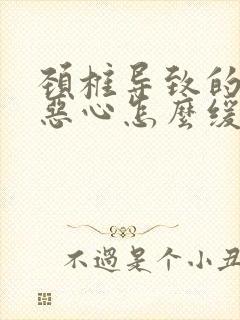 颈椎导致的
恶心怎麽缓
不過是个小丑